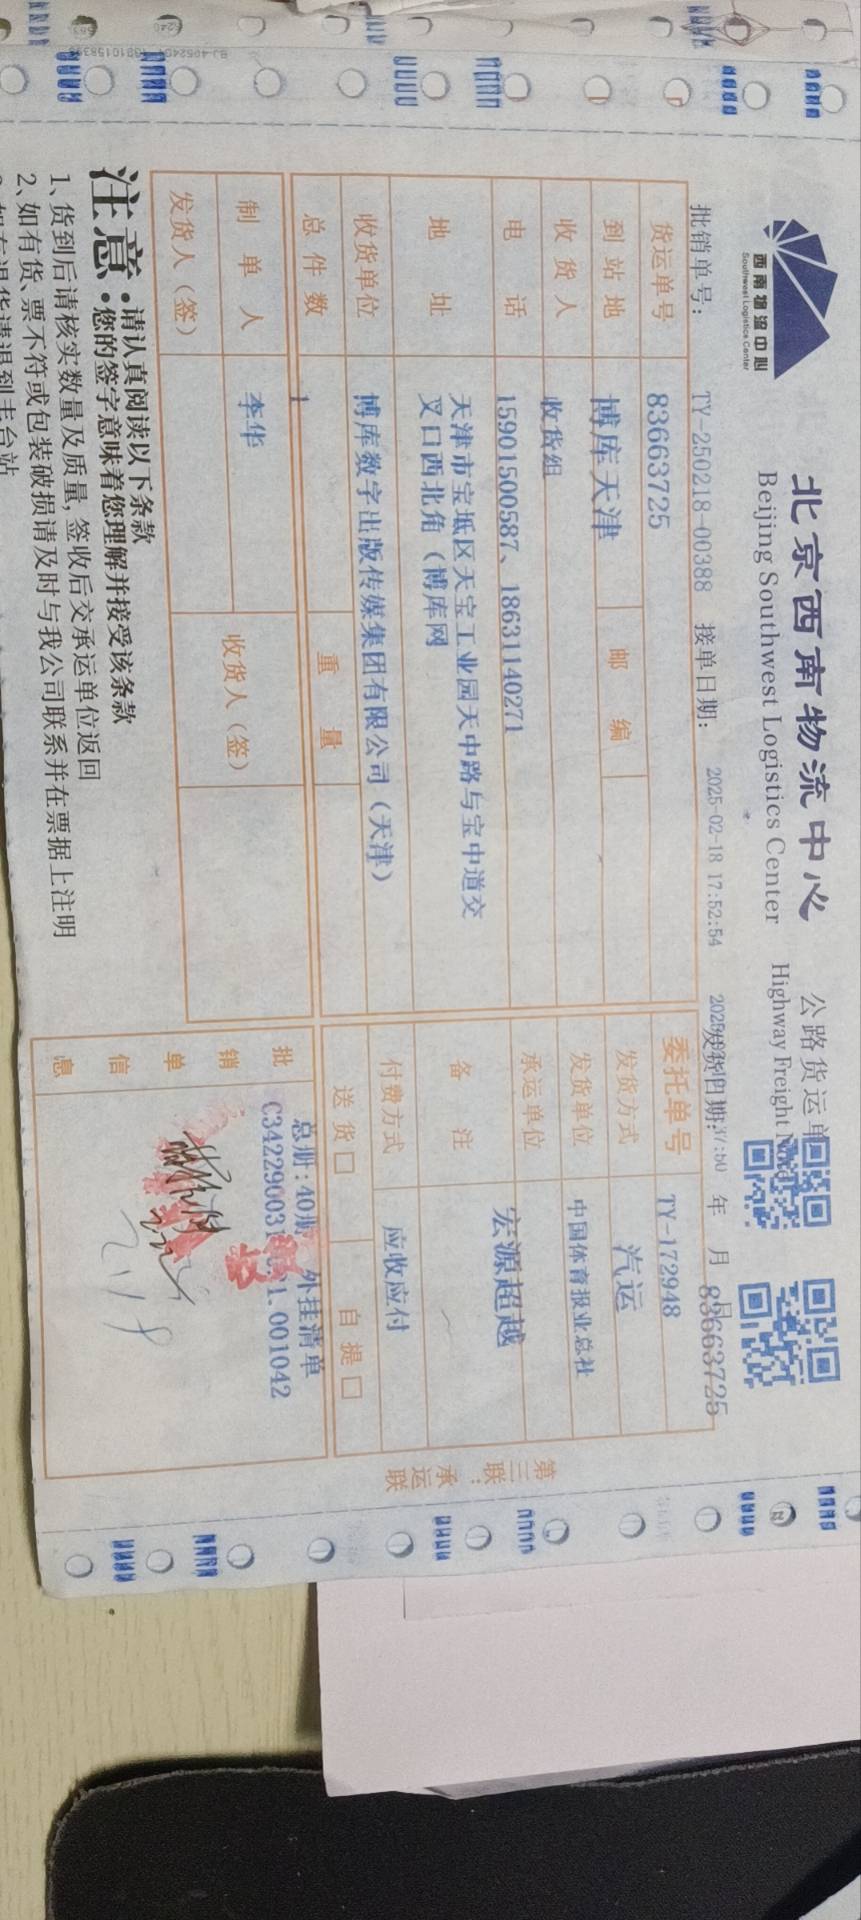 西南物流中心
Southwest Logistics Center
北京西南物流中心
Beijing Southwest Logistics Center
公路货运单
Highway Freight
批销单号: TY-250218-00388 接单日期: 2025-02-18 17:52:54 发货日期: 年 月 日
83663725
货运单号 83663725 委托单号 TY-172948
到站地 博库天津 邮编 发货方式 汽运
收货人 收货组 发货单位 中国体育报业总社
电话 15901500587、18631140271 承运单位 宏源超越
地址 天津市宝坻区天宝工业园天中路与宝中道交
叉口西北角（博库网 备注
收货单位 博库数字出版传媒集团有限公司（天津） 付费方式 应收应付
总件数 1 重量 送货□ 自提□
制单人 李华 收货人（签）
发货人（签）
批销单信息
总册:40册 外挂清单
1.001042
2/18
第三联：承运联
注意
·请认真阅读以下条款
·您的签字意味着您理解并接受该条款
1、货到后请核实数量及质量，签收后交承运单位返回
2、如有货、票不符或包装破损请及时与我公司联系并在票据上注明